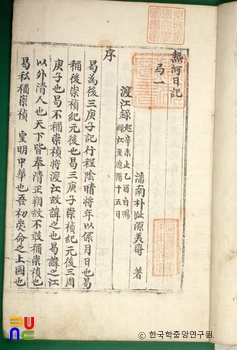 熱河日記
局一
潘南朴趾源美齋 著
渡江錄 起辛未止乙酉自鴨
綠江至遼陽十五日
序
曷為後三庚子記行程陰晴將年以係月日也曷
稱後崇禎紀元後也曷三庚子崇禎紀元後三周
庚子也曷不稱崇禎將渡江故諱之也曷諱之江
以外清人也天下皆奉清正朔故不敢稱崇禎也
曷私稱崇禎 皇明中華也吾初受命之上國也
한국학중앙연구원